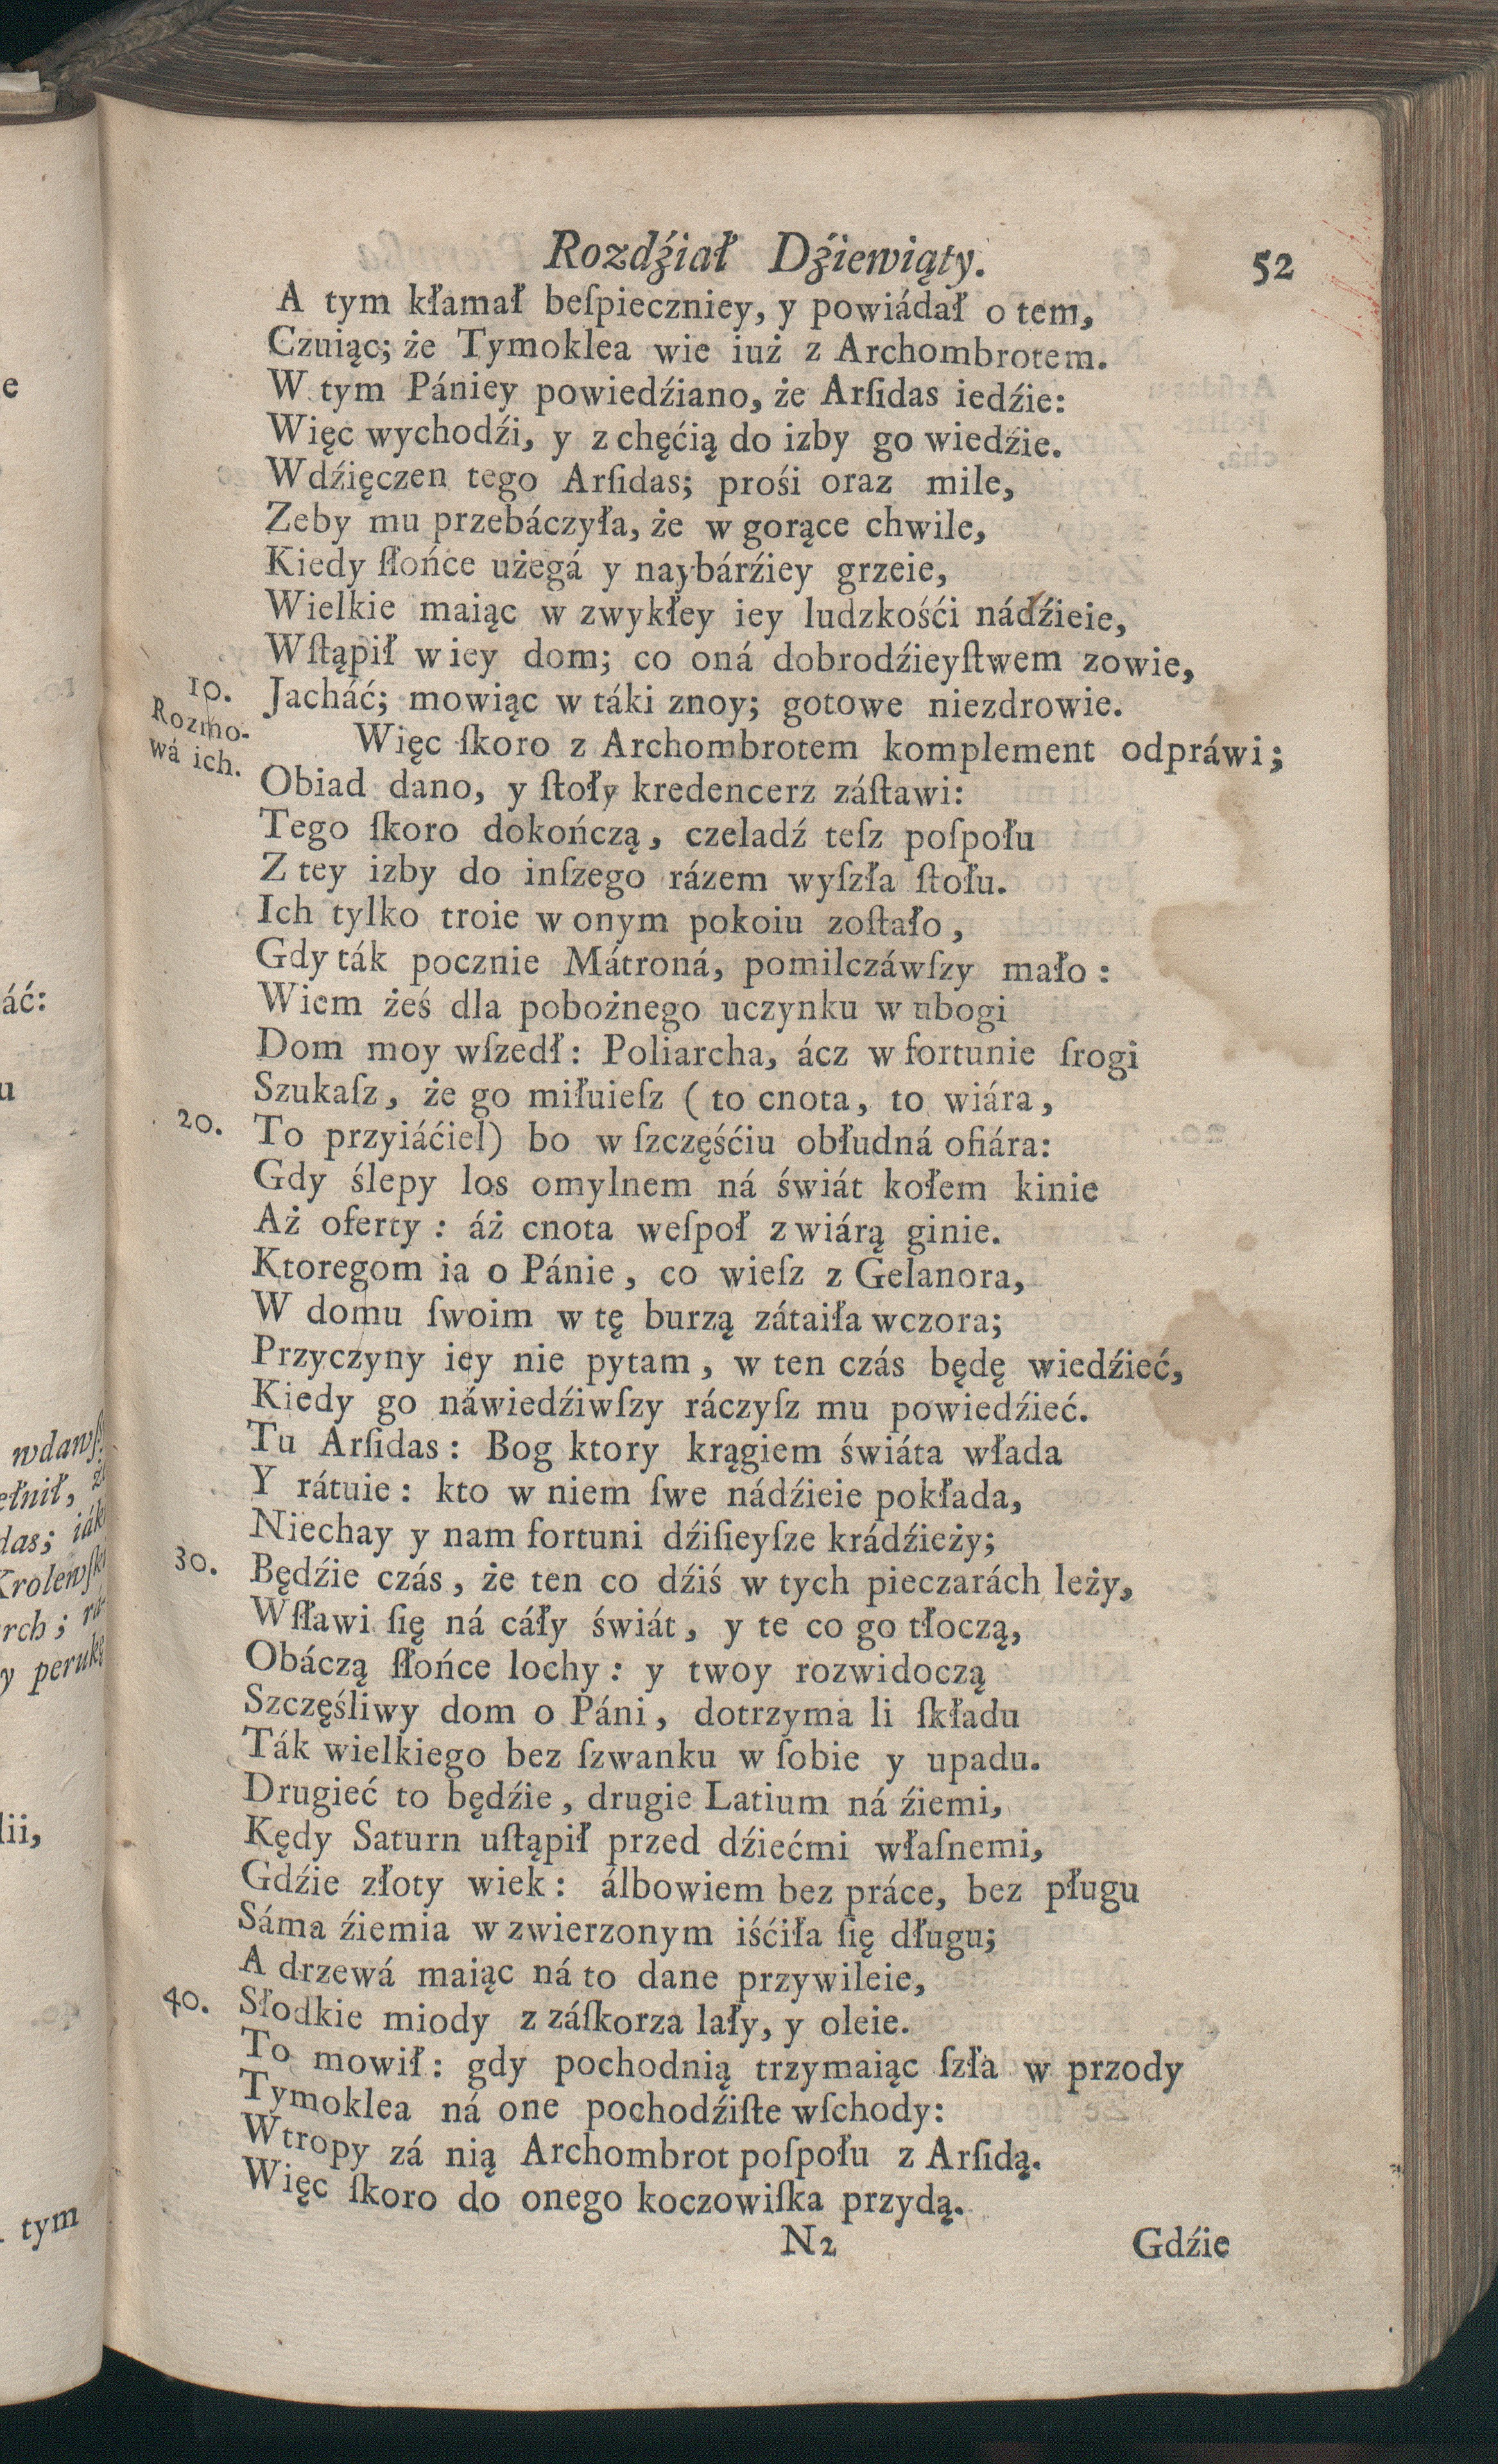 Rozdźiał Dźiewiąty.
52
A tym kłamał beſpieczniey, y powiádał o tem,
Czuiąc; że Tymoklea wie iuż z Archombrotem.
W tym Pániey powiedźiano, że Arſidas iedźie:
Więc wychodźi, y z chęćią do izby go wiedźie.
Wdźięczen tego Arſidas; prośi oraz mile,
Zeby mu przebáczyła, że w gorące chwile,
Kiedy ſłońce użegá y naybárźiey grzeie,
Wielkie maiąc w zwykłey iey ludzkośći nádźieie,
Wſtąpił w iey dom; co oná dobrodźieyſtwem zowie,
10. Jacháć; mowiąc w táki znoy; gotowe niezdrowie.
Rozmo-
wá ich.
Więc ſkoro z Archombrotem komplement odpráwi;
Obiad dano, y ſtoły kredencerz záſtawi:
Tego ſkoro dokończą, czeladź teſz poſpołu
Z tey izby do inſzego rázem wyſzła ſtołu.
Ich tylko troie w onym pokoiu zoſtało,
Gdy ták pocznie Mátroná, pomilczáwſzy mało:
Wiem żeś dla pobożnego uczynku w ubogi
Dom moy wſzedł: Poliarcha, ácz w fortunie ſrogi
Szukaſz, że go miłuieſz (to cnota, to wiára,
20. To przyiáćiel) bo w ſzczęśćiu obłudná ofiára:
Gdy ślepy los omylnem ná świát kołem kinie
Aż oferty: áż cnota weſpoł z wiárą ginie.
Ktoregom ia o Pánie, co wieſz z Gelanora,
W domu ſwoim w tę burzą zátaiła wczora;
Przyczyny iey nie pytam, w ten czás będę wiedźieć,
Kiedy go náwiedźiwſzy ráczyſz mu powiedźieć.
Tu Arſidas: Bog ktory krągiem świáta włada
Y rátuie: kto w niem ſwe nádźieie pokłada,
Niechay y nam fortuni dźiſieyſze krádźieży;
30. Będźie czás, że ten co dźiś w tych pieczarách leży,
Wſławi ſię ná cáły świát, y te co go tłoczą,
Obáczą ſłońce lochy: y twoy rozwidoczą
Szczęśliwy dom o Páni, dotrzyma li ſkładu
Ták wielkiego bez ſzwanku w ſobie y upadu.
Drugieć to będźie, drugie Latium ná źiemi,
Kędy Saturn uſtąpił przed dźiećmi właſnemi,
Gdźie złoty wiek: álbowiem bez práce, bez pługu
Sáma źiemia w zwierzonym iśćiła ſię długu;
A drzewá maiąc ná to dane przywileie,
40. Słodkie miody z záſkorza lały, y oleie.
To mowił: gdy pochodnią trzymaiąc ſzła w przody
Tymoklea ná one pochodźiſte wſchody:
Wtropy zá nią Archombrot poſpołu z Arſidą.
Więc ſkoro do onego koczowiſka przydą.
N2
Gdźie